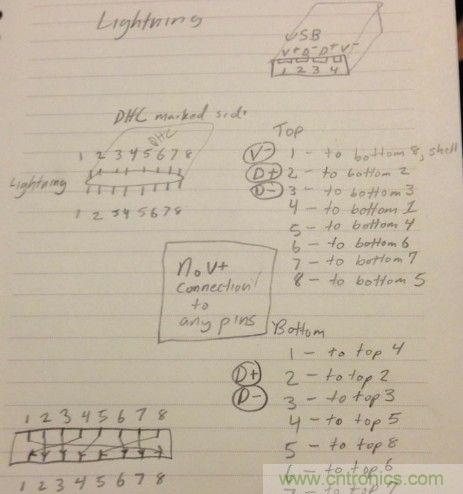 Lightning
USB
V+ D- D+ V-
1 2 3 4
DHC marked side
DHC
1 2 3 4 5 6 7 8
Lightning
1 2 3 4 5 6 7 8
Top
V- 1 - to bottom 8, shell
D+ 2 - to bottom 2
D- 3 - to bottom 3
4 - to bottom 1
5 - to bottom 4
6 - to bottom 6
7 - to bottom 7
8 - to bottom 5
No V+
connection
to
any pins
Bottom
1 - to top 4
D+ 2 - to top 2
D- 3 - to top 3
4 - to top 5
5 - to top 8
6 - to top 6
7 - to top 7
1 2 3 4 5 6 7 8
1 2 3 4 5 6 7 8
www.cntronics.com